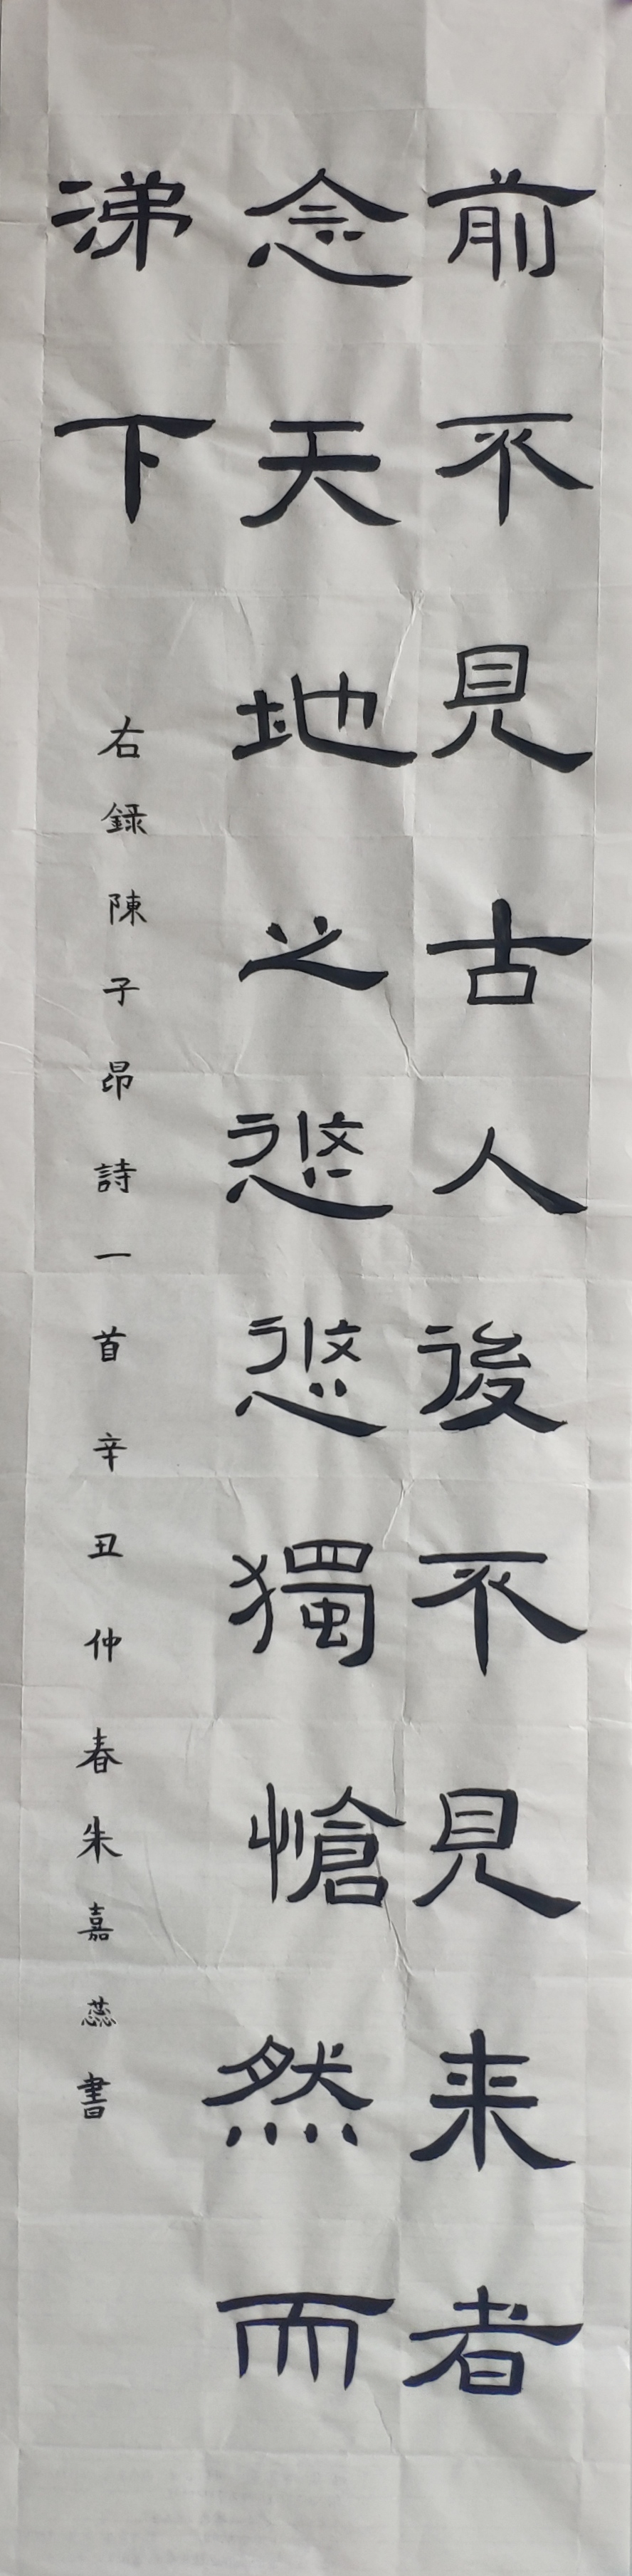 前不見古人後不見来者
念天地之悠悠獨愴然而
涕下
右錄陳子昂詩一首辛丑仲春朱嘉蕊書